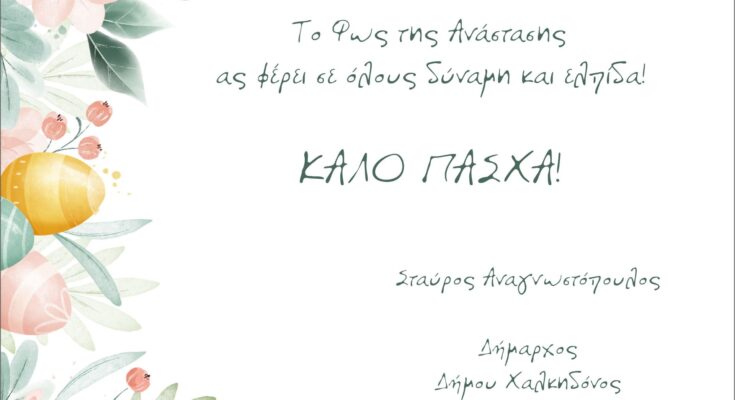 Το Φως της Ανάστασης
ας φέρει σε όλους δύναμη και ελπίδα!
ΚΑΛΟ ΠΑΣΧΑ!
Σταύρος Αναγνωστόπουλος
Δήμαρχος
Δήμου Χαλκηδόνος